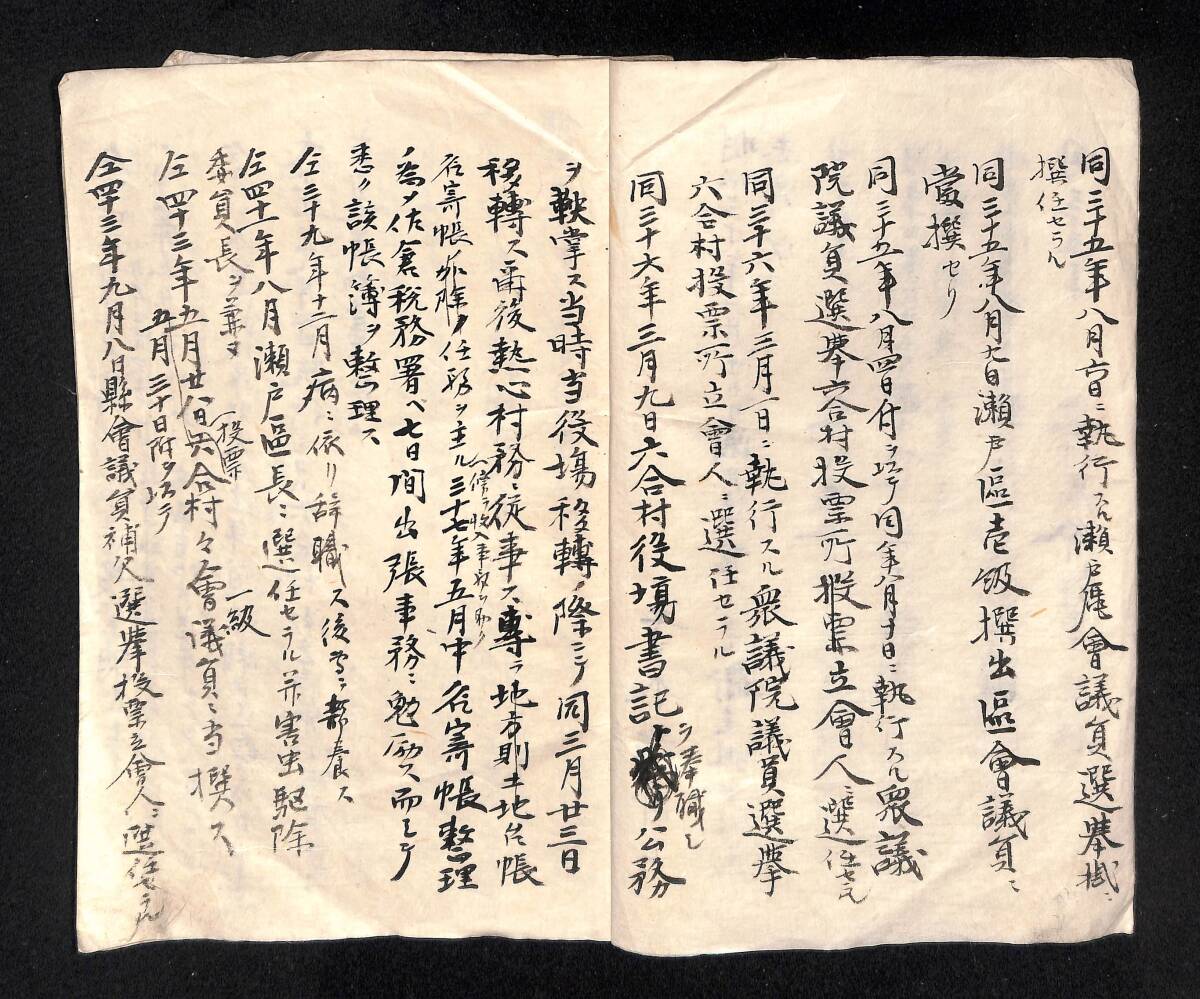 同三十五年八月六日ニ執行スル瀬戸區會議員選挙掛ニ
撰任セラル
同三十五年八月七日瀬戸區壱級撰出區會議員ニ
當撰セリ
同三十五年八月四日付ヲ以テ同年八月十日ニ執行スル衆議
院議員選挙六合村投票所投票立會人ニ選任セラル
同三十六年三月一日ニ執行スル衆議院議員選挙
六合村投票所立會人ニ選任セラル
同三十六年三月九日六合村役場書記ヲ奉職シ公務
ヲ鞅掌ス当時当役場移轉ノ際ニテ同三月廿三日
移轉ス爾後熱心村務ニ従事ス専ラ地方則土地台帳
名寄帳加除ノ任務ヲ主ル三十七年五月中名寄帳整理
為メ佐倉税務署ヘ七日間出張事務ニ勉励ス而シテ
悉ク該帳簿ヲ整理ス
仝三十九年十二月病ニ依リ辞職ス後専ラ静養ス
仝四十一年八月瀬戸區長ニ選任セラル并害虫駆除
委員長ヲ兼ヌ
仝四十三年五月廿八日投票六合村々會議員ニ一級当撰ス
五月三十日附ヲ以テ
仝四十三年九月八日縣會議員補欠選挙投票立會人ニ選任セラル